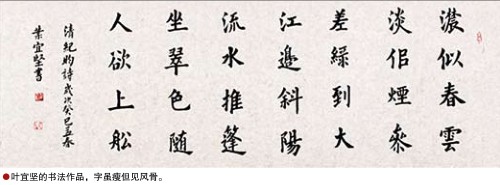 濃似春雲
淡佀煙參
差綠到大
江邊斜陽
流水推篷
坐翠色随
人欲上舩
清紀昀詩歲次癸巳孟春
葉宜堅書
叶宜坚的书法作品，字虽瘦但见风骨。